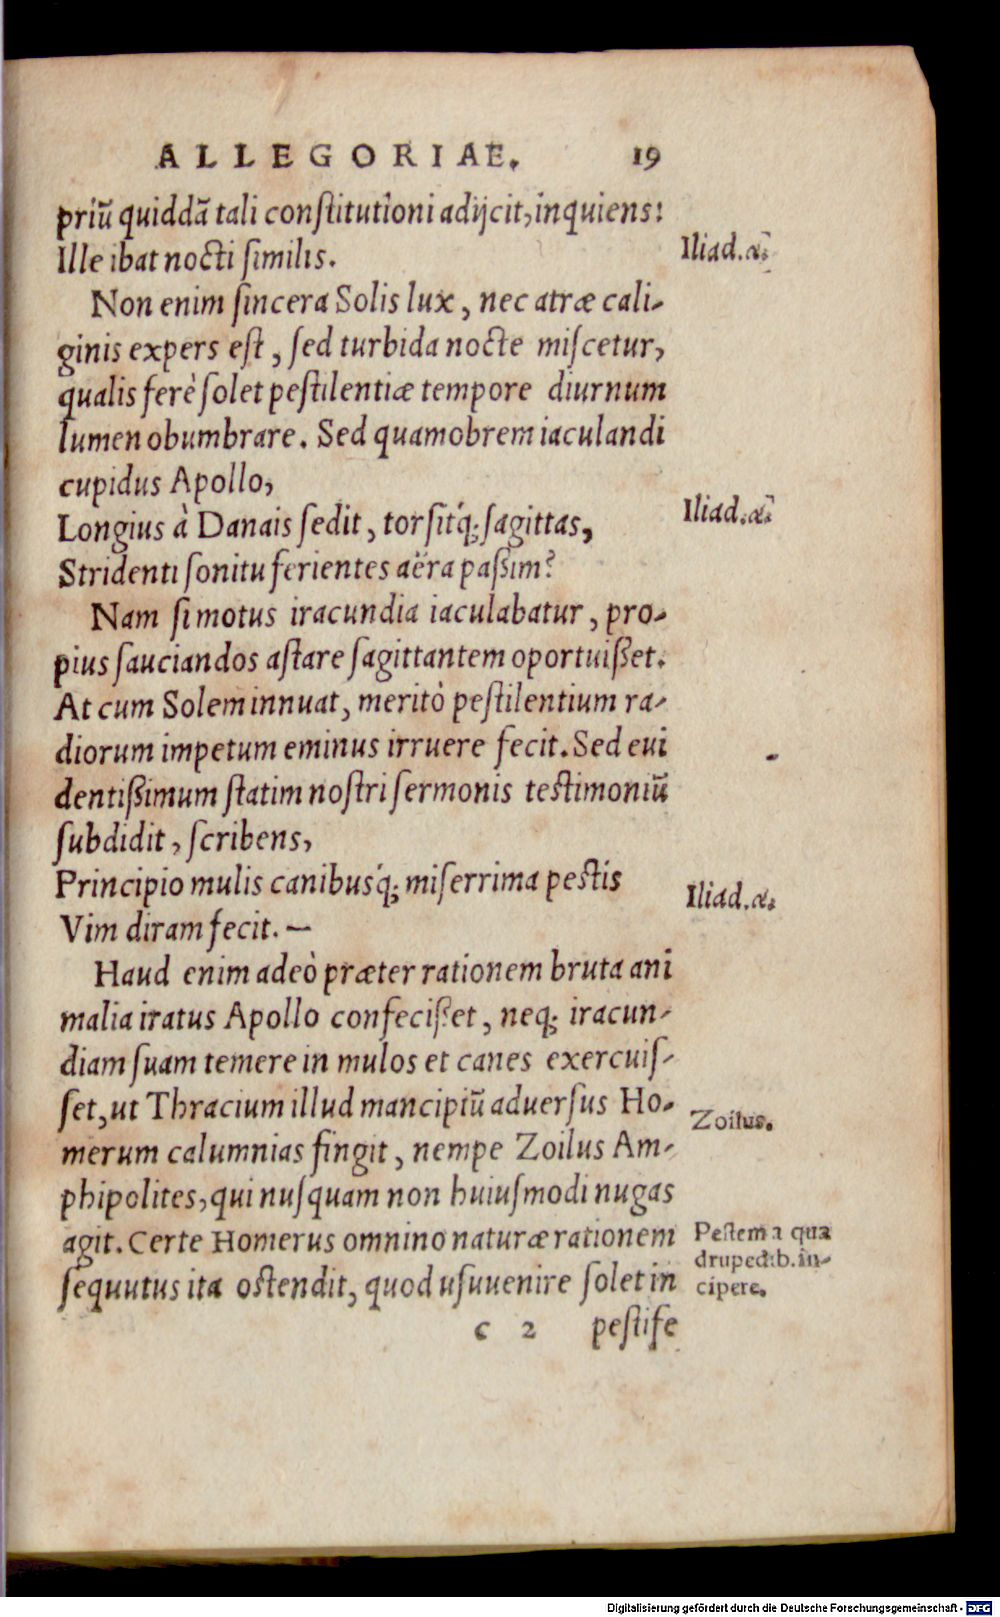 ALLEGORIAE. 19
priū quiddã tali conſtitutioni adijcit, inquiens:
Ille ibat nocti ſimilis.
Iliad.α.
Non enim ſincera Solis lux, nec atræ cali-
ginis expers eſt, ſed turbida nocte miſcetur,
qualis ferè ſolet peſtilentiæ tempore diurnum
lumen obumbrare. Sed quamobrem iaculandi
cupidus Apollo,
Longius à Danais ſedit, torſitq́; ſagittas,
Iliad.α.
Stridenti ſonitu ferientes aëra paßim?
Nam ſi motus iracundia iaculabatur, pro-
pius ſauciandos aſtare ſagittantem oportuißet.
At cum Solem innuat, meritò peſtilentium ra-
diorum impetum eminus irruere fecit. Sed eui
dentißimum ſtatim noſtri ſermonis teſtimoniū
ſubdidit, ſcribens,
Principio mulis canibusq́; miſerrima peſtis
Iliad.α.
Vim diram fecit. —
Haud enim adeò præter rationem bruta ani
malia iratus Apollo confecißet, neq; iracun-
diam ſuam temere in mulos et canes exercuiſ-
ſet, ut Thracium illud mancipiū aduerſus Ho-
Zoilus.
merum calumnias fingit, nempe Zoilus Am-
phipolites, qui nuſquam non huiuſmodi nugas
agit. Certe Homerus omnino naturæ rationem
ſequutus ita oſtendit, quod uſuuenire ſolet in
Peſtem a qua
drupedib. in-
cipere.
c 2 peſtife
Digitalisierung gefördert durch die Deutsche Forschungsgemeinschaft - DFG